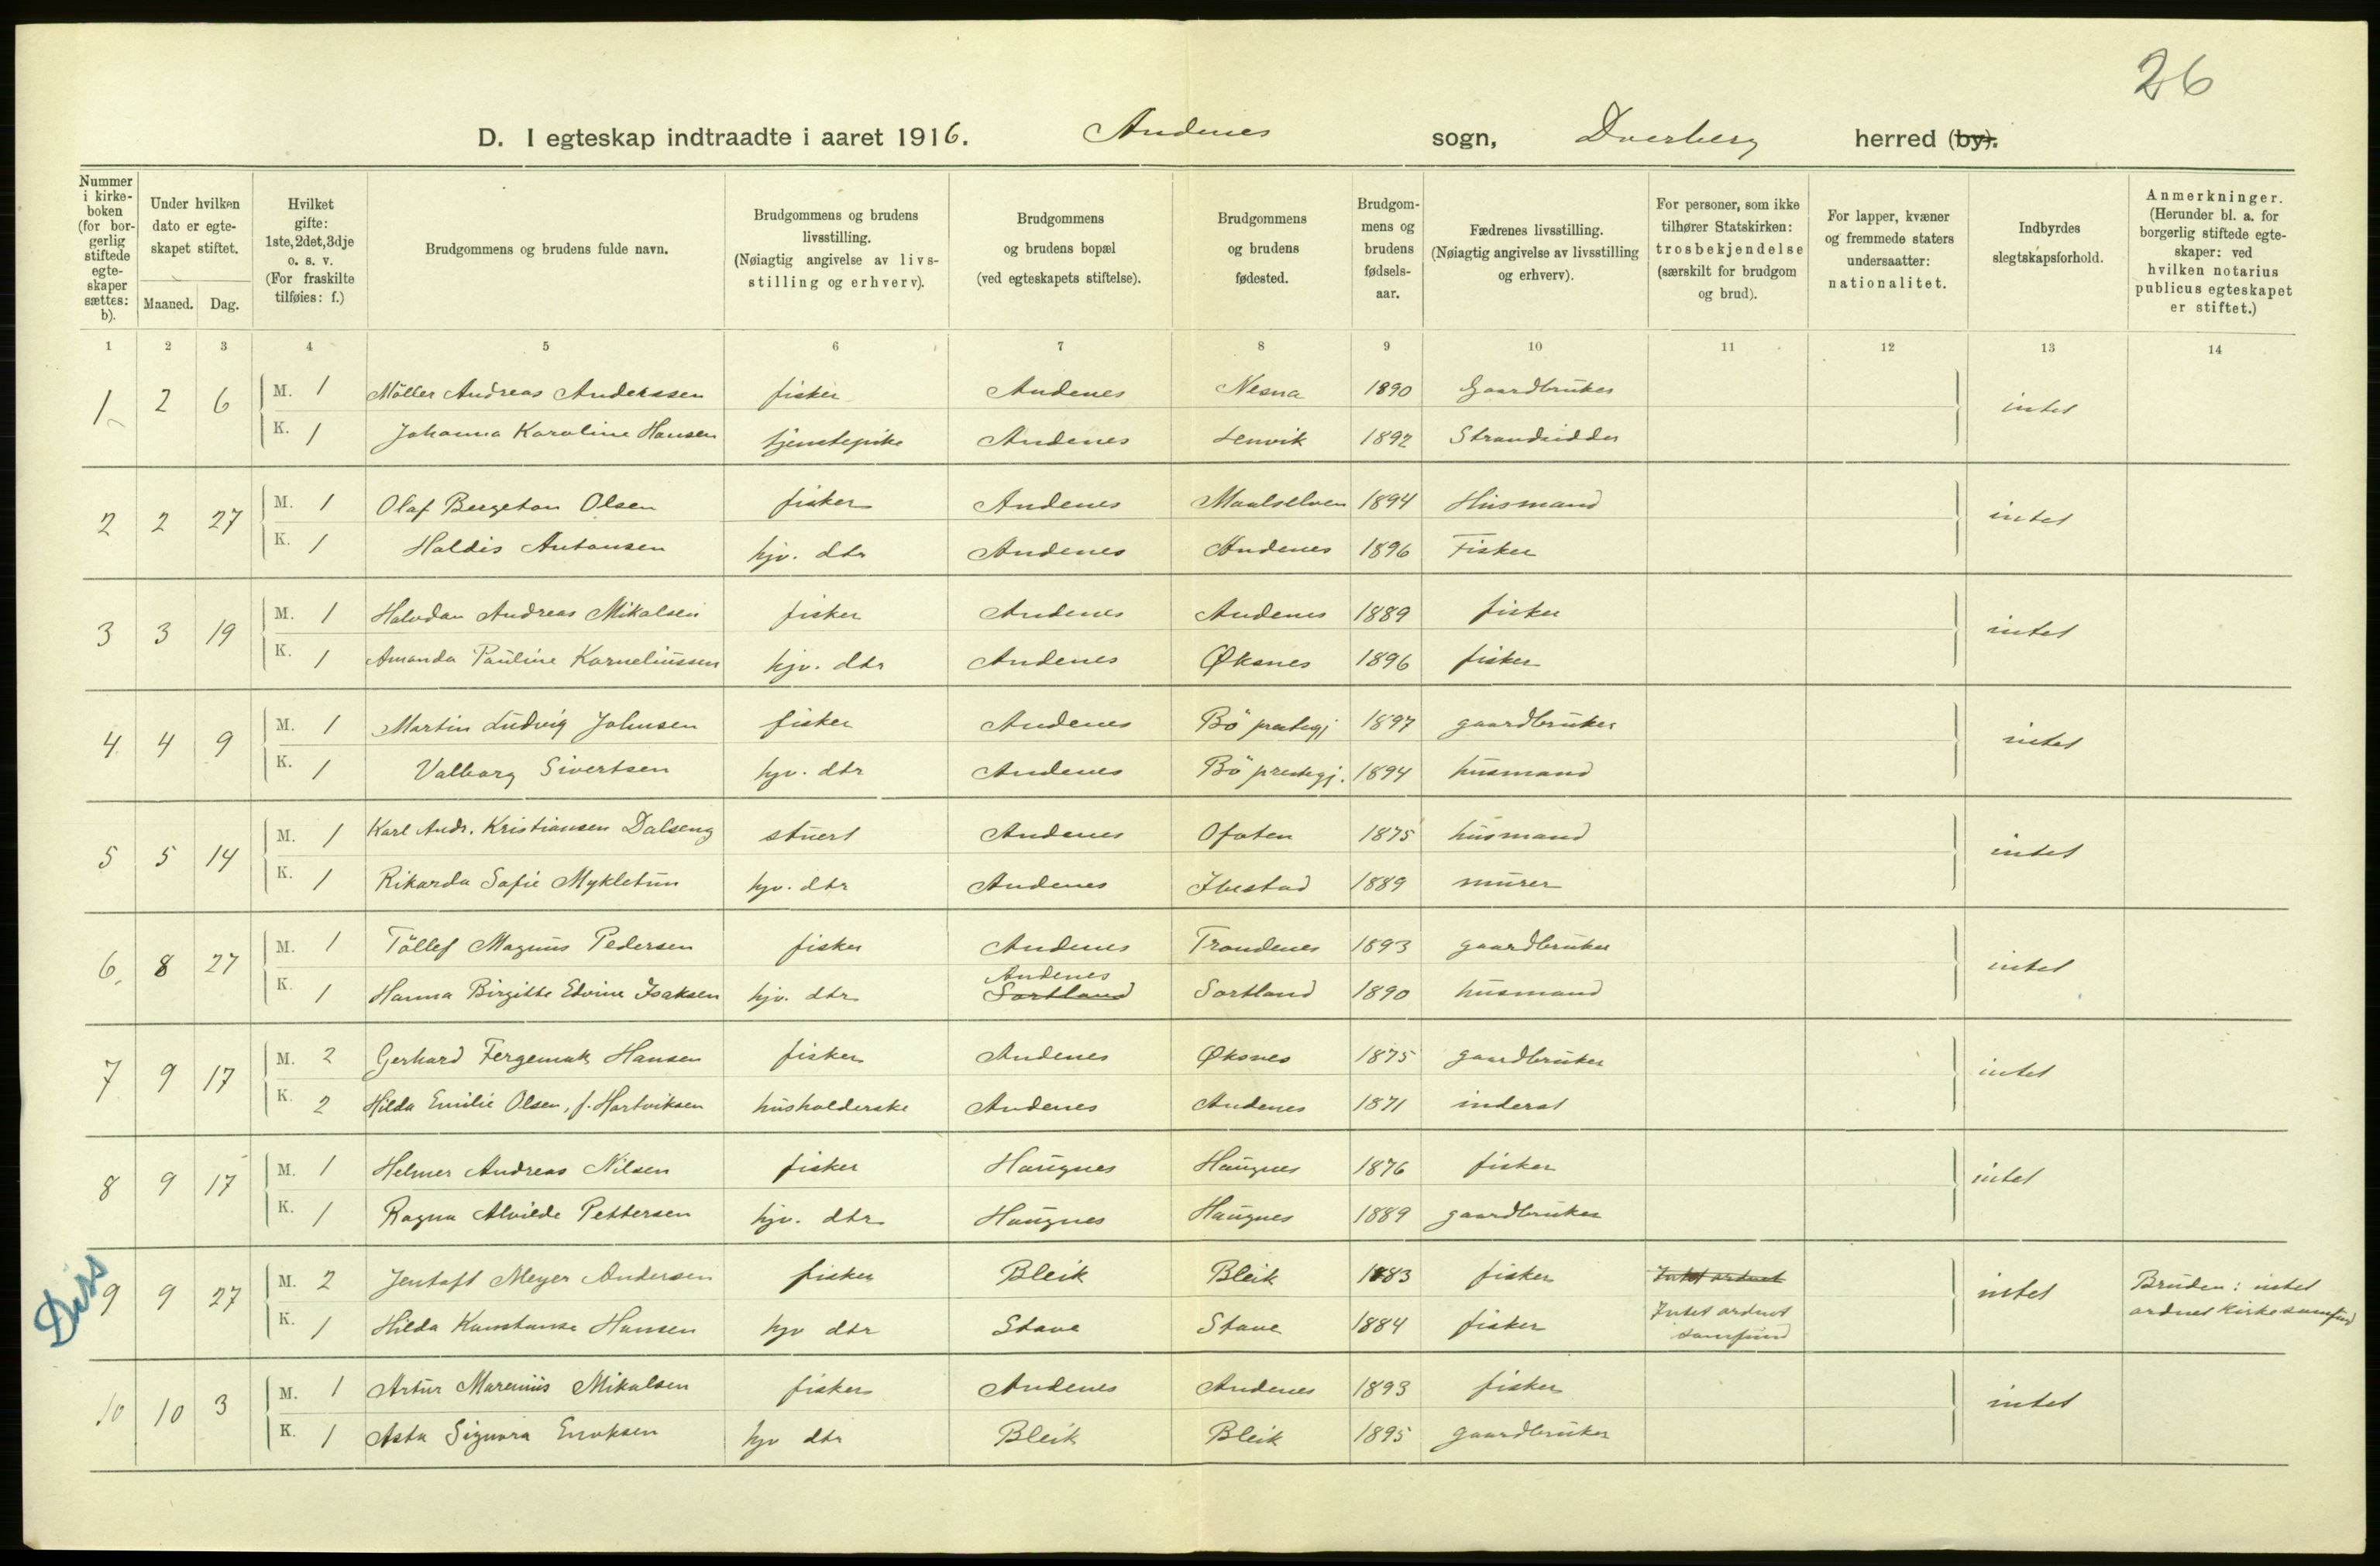 26
D. I egteskap indtraadte i aaret 1916. Andenes sogn, Dverberg herred (by).
Nummer i kirke-boken (for bor-gerlig stiftede egte-skaper sættes: b).
Under hvilken dato er egte-skapet stiftet.
Maaned. Dag.
Hvilket gifte: 1ste, 2det, 3dje o. s. v. (For fraskilte tilføies: f.)
Brudgommens og brudens fulde navn.
Brudgommens og brudens livsstilling. (Nøiagtig angivelse av livs-stilling og erhverv).
Brudgommens og brudens bopæl (ved egteskapets stiftelse).
Brudgommens og brudens fødested.
Brudgom-mens og brudens fødsels-aar.
Fædrenes livsstilling. (Nøiagtig angivelse av livsstilling og erhverv).
For personer, som ikke tilhører Statskirken: trosbekjendelse (særskilt for brudgom og brud).
For lapper, kvæner og fremmede staters undersaatter: nationalitet.
Indbyrdes slegtskapsforhold.
Anmerkninger. (Herunder bl. a. for borgerlig stiftede egte-skaper: ved hvilken notarius publicus egteskapet er stiftet.)
1 2 3 4 5 6 7 8 9 10 11 12 13 14
1 2 6 M. 1 Möller Andreas Anderssen fisker Andenes Nesna 1890 Gaardbruker intet
K. 1 Johanna Karoline Hansen tjenstepike Andenes Lenvik 1892 Strandsidder
2 2 27 M. 1 Olaf Bergeton Olsen fisker Andenes Maalselven 1894 Husmand intet
K. 1 Haldis Antonsen hjv. dtr Andenes Andenes 1896 Fisker
3 3 19 M. 1 Halvdan Andreas Mikalsen fisker Andenes Andenes 1889 fisker intet
K. 1 Amanda Pauline Korneliussen hjv. dtr Andenes Øksnes 1896 fisker
4 4 9 M. 1 Martin Ludvig Johnsen fisker Andenes Bö prestegj 1897 gaardbruker intet
K. 1 Valborg Sivertsen hjv. dtr Andenes Bö prestegj. 1894 husmand
5 5 14 M. 1 Karl Andr. Kristiansen Dalseng stuert Andenes Ofoten 1875 husmand intet
K. 1 Rikarda Sofie Mykletun hjv. dtr Andenes Ibestad 1889 murer
6. 8 27 M. 1 Töllef Magnus Pedersen fisker Andenes Trondenes 1893 gaardbruker intet
K. 1 Hanna Birgitte Edvine Isaksen hjv. dtr Andenes Sortland Sortland 1890 husmand
7 9 17 M. 2 Gerhard Hansen fisker Andenes Øksnes 1875 gaardbruker intet
K. 2 Hilda Emilie Olsen, f. Hartviksen husholderske Andenes Andenes 1871 inderst
8 9 17 M. 1 Helmer Andreas Nilsen fisker Haugnes Haugnes 1876 fisker intet
K. 1 Ragna Alvilde Pettersen hjv. dtr Haugnes Haugnes 1889 gaardbruker
Diss
9 9 27 M. 2 Jentoft Meyer Andersen fisker Bleik Bleik 1883 fisker Intet ordnet intet Bruden: intet
K. 1 Hilda Konstanse Hansen hjv dtr Stave Stave 1884 fisker Intet ordnet samfund ordnet kirkesamfund
10 10 3 M. 1 Artur Marenius Mikalsen fisker Andenes Andenes 1893 fisker intet
K. 1 Asta Signora Enoksen hjv dtr Bleik Bleik 1895 gaardbruker